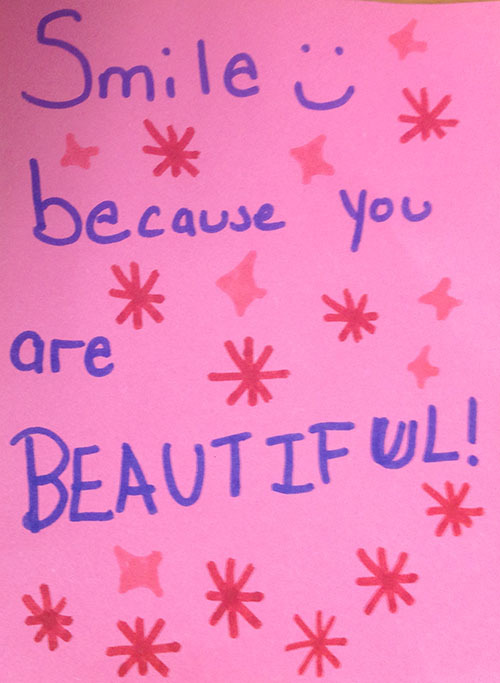 Smile
because you
are
BEAUTIFUL!